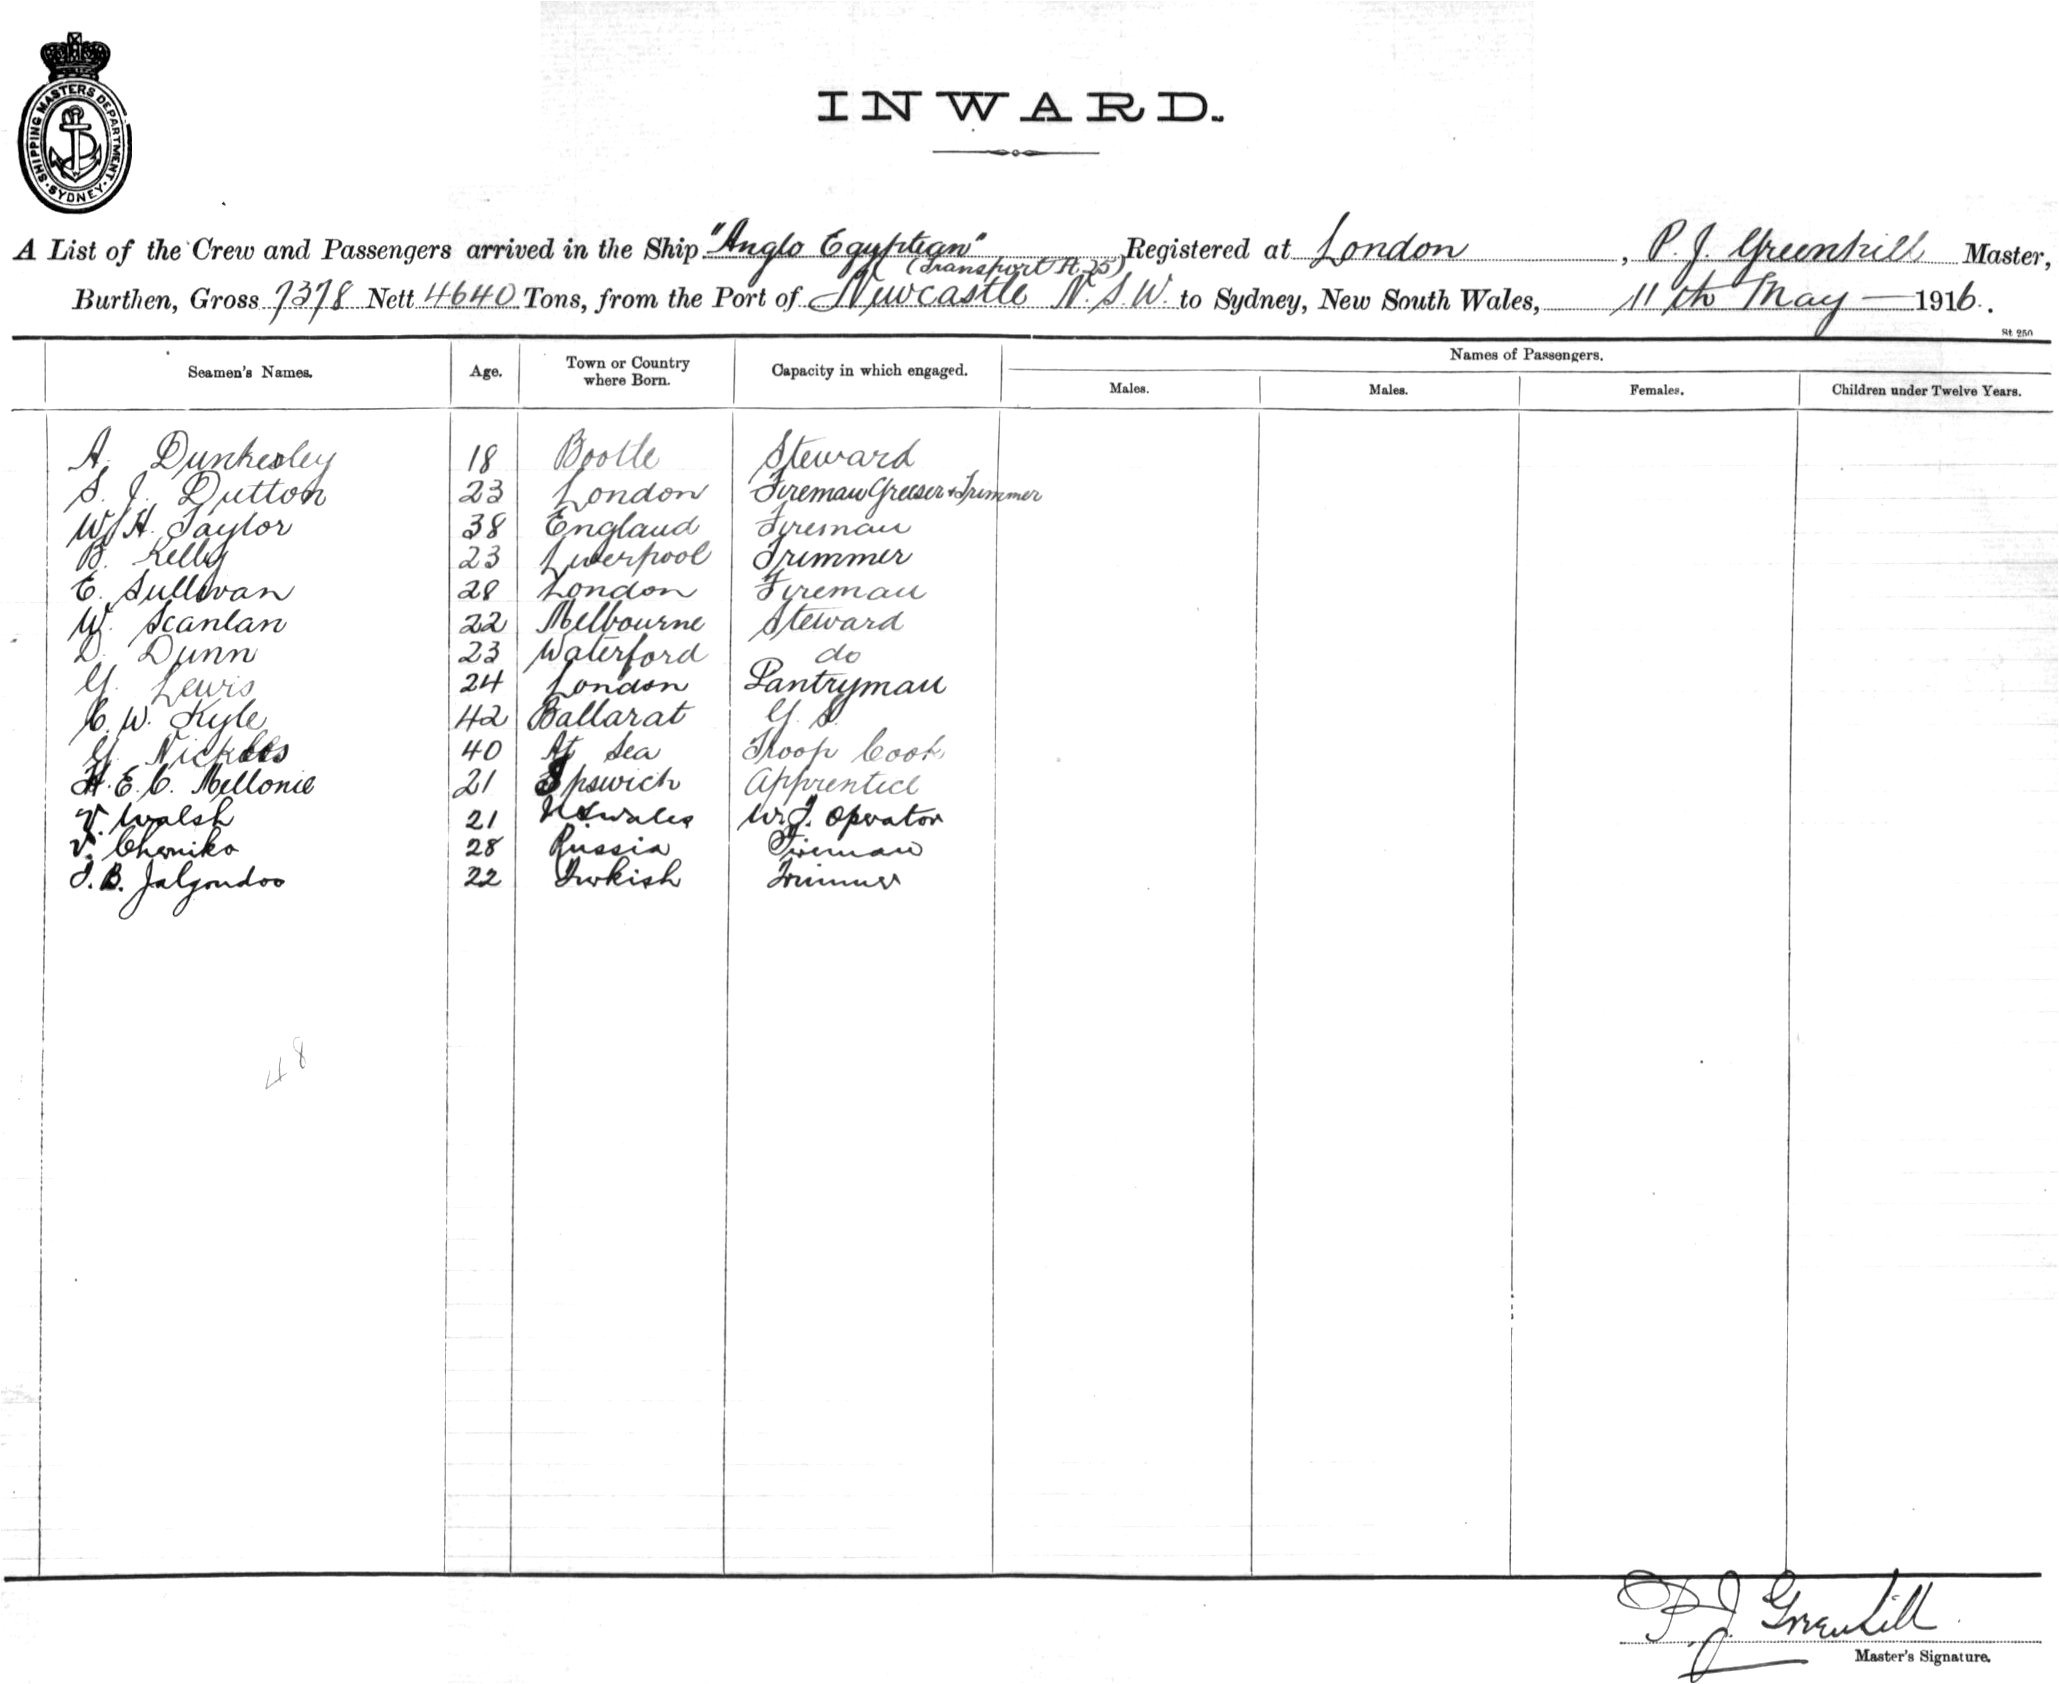 SHIPPING MASTERS DEPARTMENT · SYDNEY ·
INWARD.
A List of the Crew and Passengers arrived in the Ship "Anglo Egyptian" Registered at London, P. J. Greenhill Master,
(Transport A. 25)
Burthen, Gross 7378 Nett 4640 Tons, from the Port of Newcastle N.S.W. to Sydney, New South Wales, 11th May 1916.
St. 250
Names of Passengers.
Seamen's Names. Age. Town or Country where Born. Capacity in which engaged. Males. Males. Females. Children under Twelve Years.
A. Dunkerley 18 Bootle Steward
S. J. Dutton 23 London Fireman Greeser & Trimmer
W. H. Taylor 38 England Fireman
B. Kelly 23 Liverpool Trimmer
E. Sullivan 28 London Fireman
W. Scanlan 22 Melbourne Steward
D. Dunn 23 Waterford do
G. Lewis 24 London Pantryman
C. W. Kyle 42 Ballarat G. S.
G. 40 At Sea Troop Cook
H. E. C. Mellonie 21 Ipswich Apprentice
V. Walsh 21 N S Wales W. T. Operator
V. Cherniko 28 Russia Fireman
J. B. 22 Turkish Trimmer
48
P. J. Greenhill
Master's Signature.